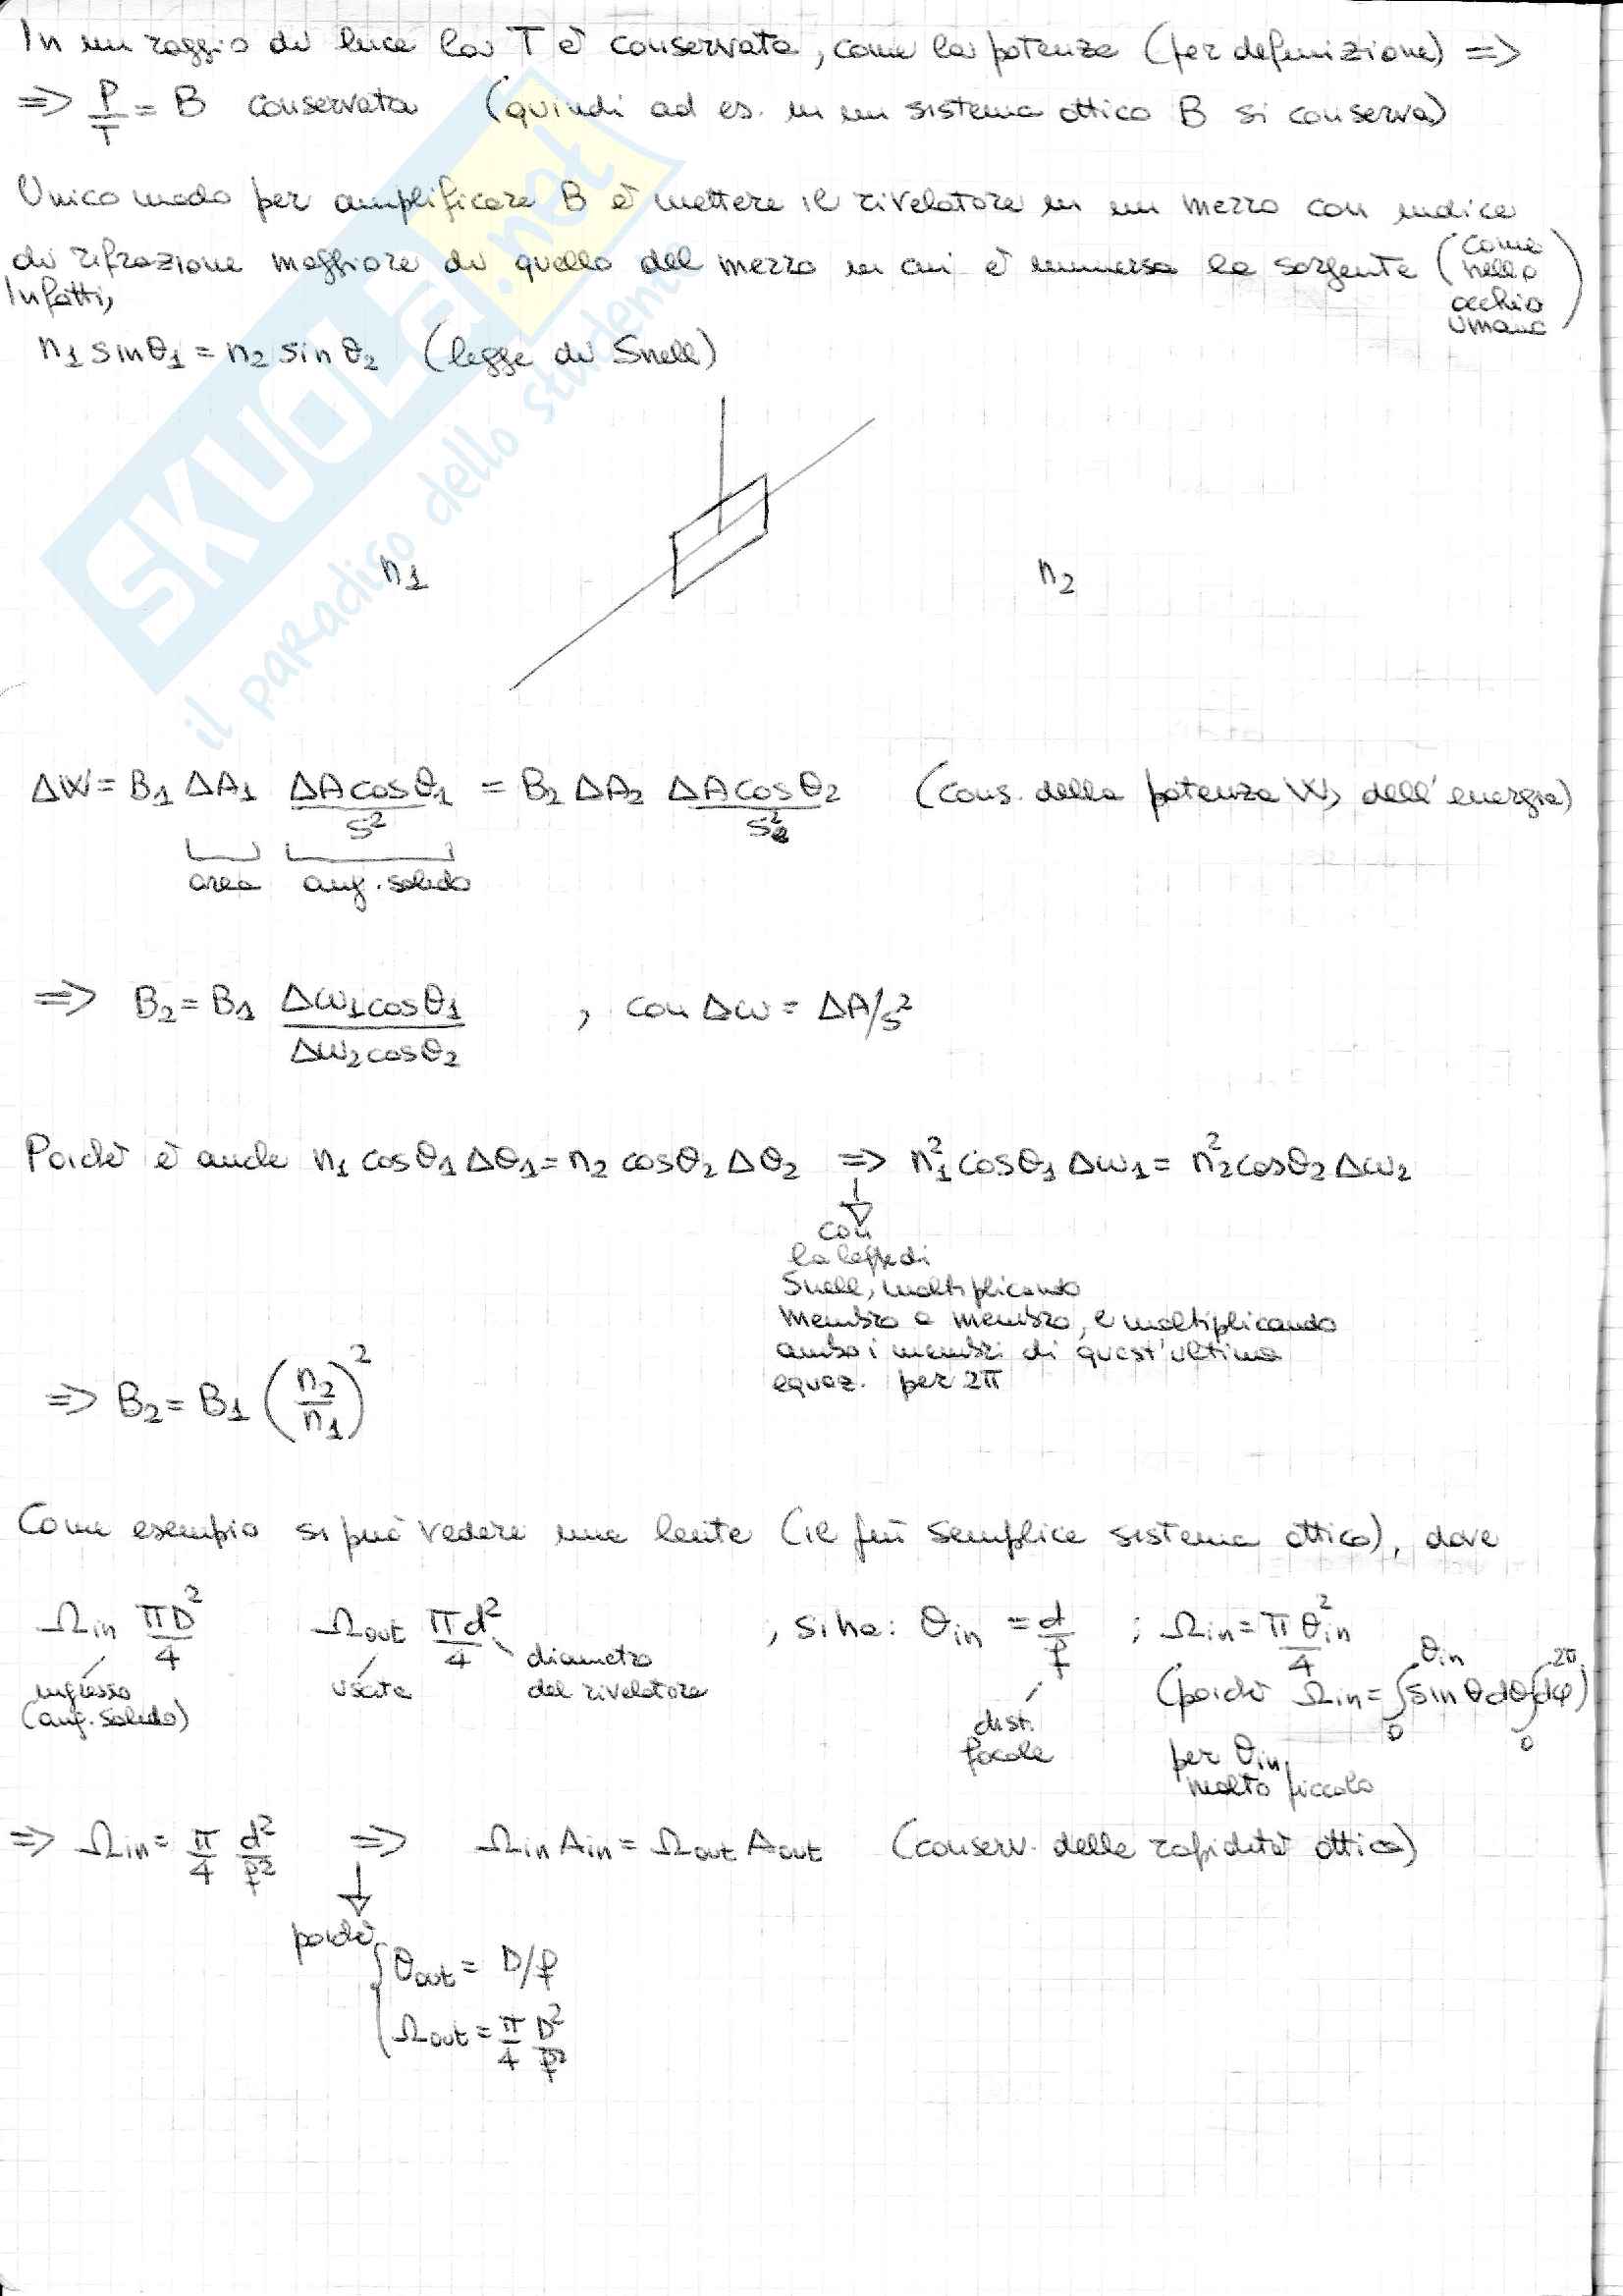 In un raggio di luce la T è conservata, come la potenza (per definizione) =>
=> P/T = B conservata (quindi ad es. in un sistema ottico B si conserva)
Unico modo per amplificare B è mettere il rivelatore in un mezzo con indice
di rifrazione maggiore di quello del mezzo in cui è immersa la sorgente (come nello occhio umano)
Infatti,
n₁ sinθ₁ = n₂ sinθ₂ (legge di Snell)
n₁ n₂
ΔW = B₁ ΔA₁ ΔA cosθ₁/s² = B₂ ΔA₂ ΔA cosθ₂/s² (cons. della potenza W, dell'energia)
area ang. solido
=> B₂ = B₁ Δω₁cosθ₁/Δω₂cosθ₂ , con Δω = ΔA/s²
Poichè è anche n₁ cosθ₁ Δθ₁ = n₂ cosθ₂ Δθ₂ => n₁² cosθ₁ Δω₁ = n₂² cosθ₂ Δω₂
con
la legge di
Snell, moltiplicando
membro a membro, e moltiplicando
ambo i membri di quest'ultima
equaz. per 2π
=> B₂ = B₁ (n₂/n₁)²
Come esempio si può vedere una lente (il più semplice sistema ottico), dove
Ωin πD²/4 Ωout πd²/4 , si ha: θin = d/f ; Ωin = πθ²in/4
ingresso (ang. solido) uscita diametro del rivelatore dist. focale (poichè Ωin = ∫₀^θin sinθdθ ∫₀^2π dφ)
per θin molto piccolo
=> Ωin = π/4 d²/f² => Ωin Ain = Ωout Aout (conserv. della rapidità ottica)
poichè
θout = D/f
Ωout = π/4 D²/f²
SKUOLA.net
il paradiso dello studente